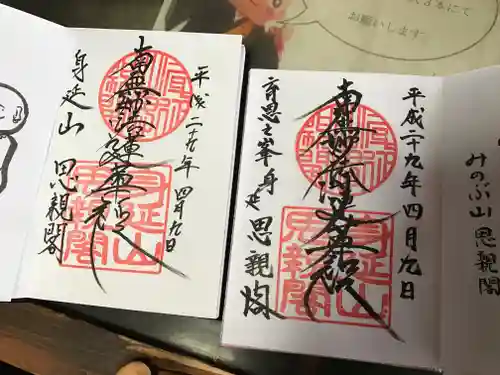 お願いします。
平成二十九年四月九日
南無妙法蓮華経
身延山 思親閣
身延山
思親閣
平成二十九年四月九日
南無妙法蓮華経
育恩之峯 身延 思親閣
身延山
思親閣
みのぶ山 思親閣